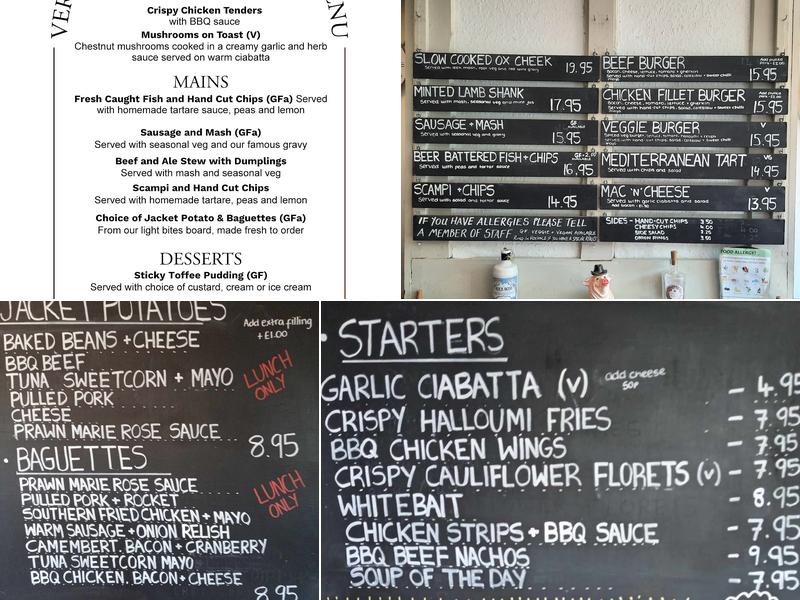 VER
ENU
Crispy Chicken Tenders
with BBQ sauce
Mushrooms on Toast (V)
Chestnut mushrooms cooked in a creamy garlic and herb
sauce served on warm ciabatta
MAINS
Fresh Caught Fish and Hand Cut Chips (GFa) Served
with homemade tartare sauce, peas and lemon
Sausage and Mash (GFa)
Served with seasonal veg and our famous gravy
Beef and Ale Stew with Dumplings
Served with mash and seasonal veg
Scampi and Hand Cut Chips
Served with homemade tartare, peas and lemon
Choice of Jacket Potato & Baguettes (GFa)
From our light bites board, made fresh to order
DESSERTS
Sticky Toffee Pudding (GF)
Served with choice of custard, cream or ice cream
SLOW COOKED OX CHEEK 19.95
MINTED LAMB SHANK
17.95
SAUSAGE + MASH
Served with seasonal veg and gravy
15.95
BEER BATTERED FISH + CHIPS
Served with peas and tartar sauce
16.95
SCAMPI + CHIPS
Served with salad and tartar sauce
14.95
IF YOU HAVE ALLERGIES PLEASE TELL
A MEMBER OF STAFF
BEEF BURGER
15.95
CHICKEN FILLET BURGER
15.95
VEGGIE BURGER V
15.95
MEDITERRANEAN TART VG
Served with chips and salad
14.95
MAC 'N' CHEESE V
Served with garlic ciabatta and salad
13.95
SIDES - HAND CUT CHIPS 3.50
CHEESY CHIPS 4.00
SIDE SALAD 3.25
ONION RINGS 3.50
FOOD ALLERGY
JACKET POTATOES
Add extra filling
+£1.00
BAKED BEANS + CHEESE
BBQ BEEF
TUNA SWEETCORN + MAYO
PULLED PORK
CHEESE
PRAWN MARIE ROSE SAUCE
LUNCH
ONLY
8.95
• BAGUETTES
PRAWN MARIE ROSE SAUCE
PULLED PORK + ROCKET
SOUTHERN FRIED CHICKEN + MAYO
WARM SAUSAGE + ONION RELISH
CAMEMBERT, BACON + CRANBERRY
TUNA SWEETCORN MAYO
BBQ CHICKEN, BACON + CHEESE
LUNCH
ONLY
8.95
• STARTERS
GARLIC CIABATTA (v) add cheese 50p - 4.95
CRISPY HALLOUMI FRIES - 7.95
BBQ CHICKEN WINGS - 7.95
CRISPY CAULIFLOWER FLORETS (v) - 7.95
WHITEBAIT - 8.95
CHICKEN STRIPS + BBQ SAUCE - 7.95
BBQ BEEF NACHOS - 9.95
SOUP OF THE DAY - 7.95